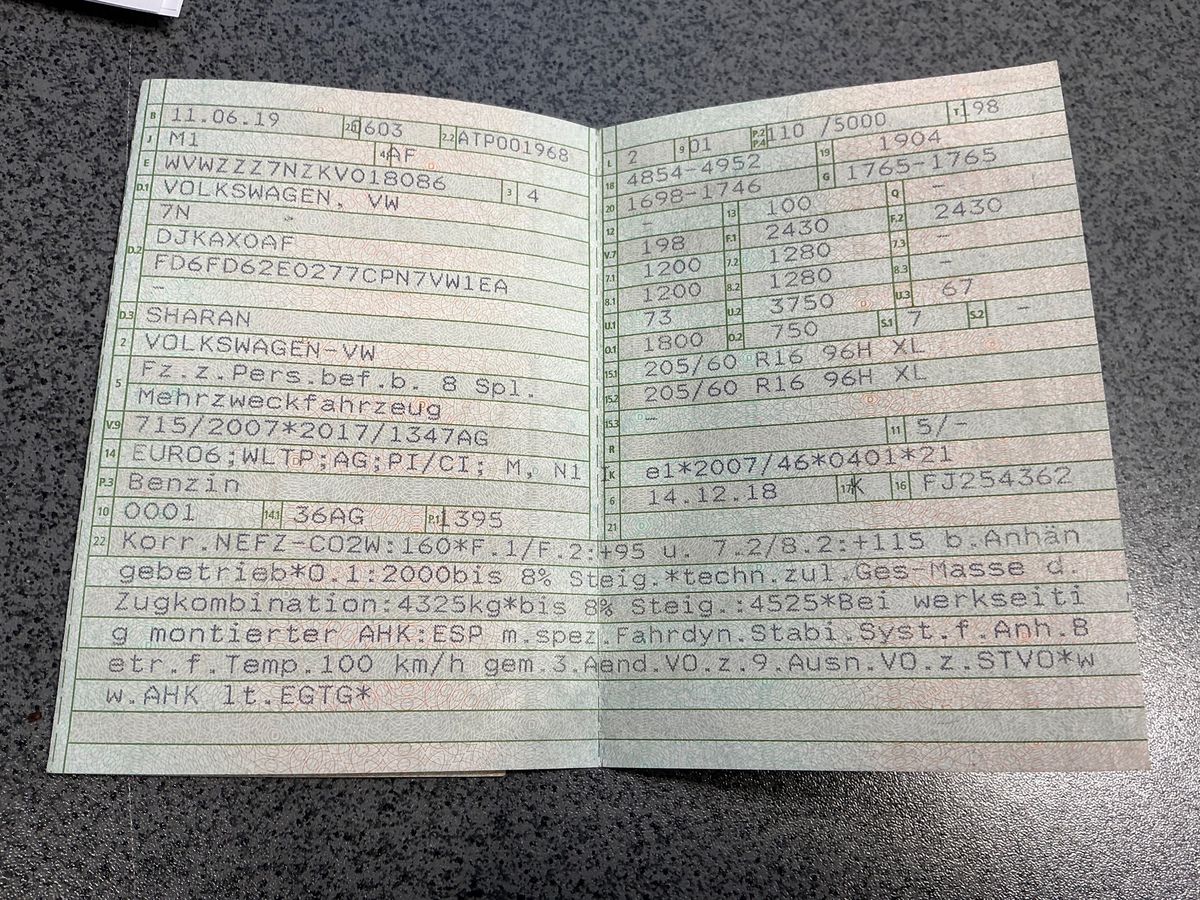 B 11.06.19 2.1 0603 2.2 ATP001968
J M1 4 AF
E WVWZZZ7NZKV018086 3 4
D.1 VOLKSWAGEN, VW
7N
D.2 DJKAX0AF
FD6FD62E0277CPN7VW1EA
–
D.3 SHARAN
2 VOLKSWAGEN-VW
5 Fz.z.Pers.bef.b. 8 Spl.
Mehrzweckfahrzeug
V.9 715/2007*2017/1347AG
14 EURO6;WLTP;AG;PI/CI; M, N1 I
P.3 Benzin
10 0001 14.1 36AG P.1 1395
L 2 9 01 P.2 P.4 110 /5000 T 198
18 4854-4952 19 1904
20 1698-1746 G 1765-1765
12 – 13 100 Q –
V.7 198 F.1 2430 F.2 2430
7.1 1200 7.2 1280 7.3 –
8.1 1200 8.2 1280 8.3 –
U.1 73 U.2 3750 U.3 67
O.1 1800 O.2 750 S.1 7 S.2 –
15.1 205/60 R16 96H XL
15.2 205/60 R16 96H XL
15.3 –
R 11 5/-
K e1*2007/46*0401*21
6 14.12.18 17 K 16 FJ254362
21
22 Korr.NEFZ-CO2W:160*F.1/F.2:+95 u. 7.2/8.2:+115 b.Anhän
gebetrieb*O.1:2000bis 8% Steig.*techn.zul.Ges-Masse d.
Zugkombination:4325kg*bis 8% Steig.:4525*Bei werkseiti
g montierter AHK:ESP m.spez.Fahrdyn.Stabi.Syst.f.Anh.B
etr.f.Temp.100 km/h gem.3.Aend.VO.z.9.Ausn.VO.z.STVO*w
w.AHK lt.EGTG*